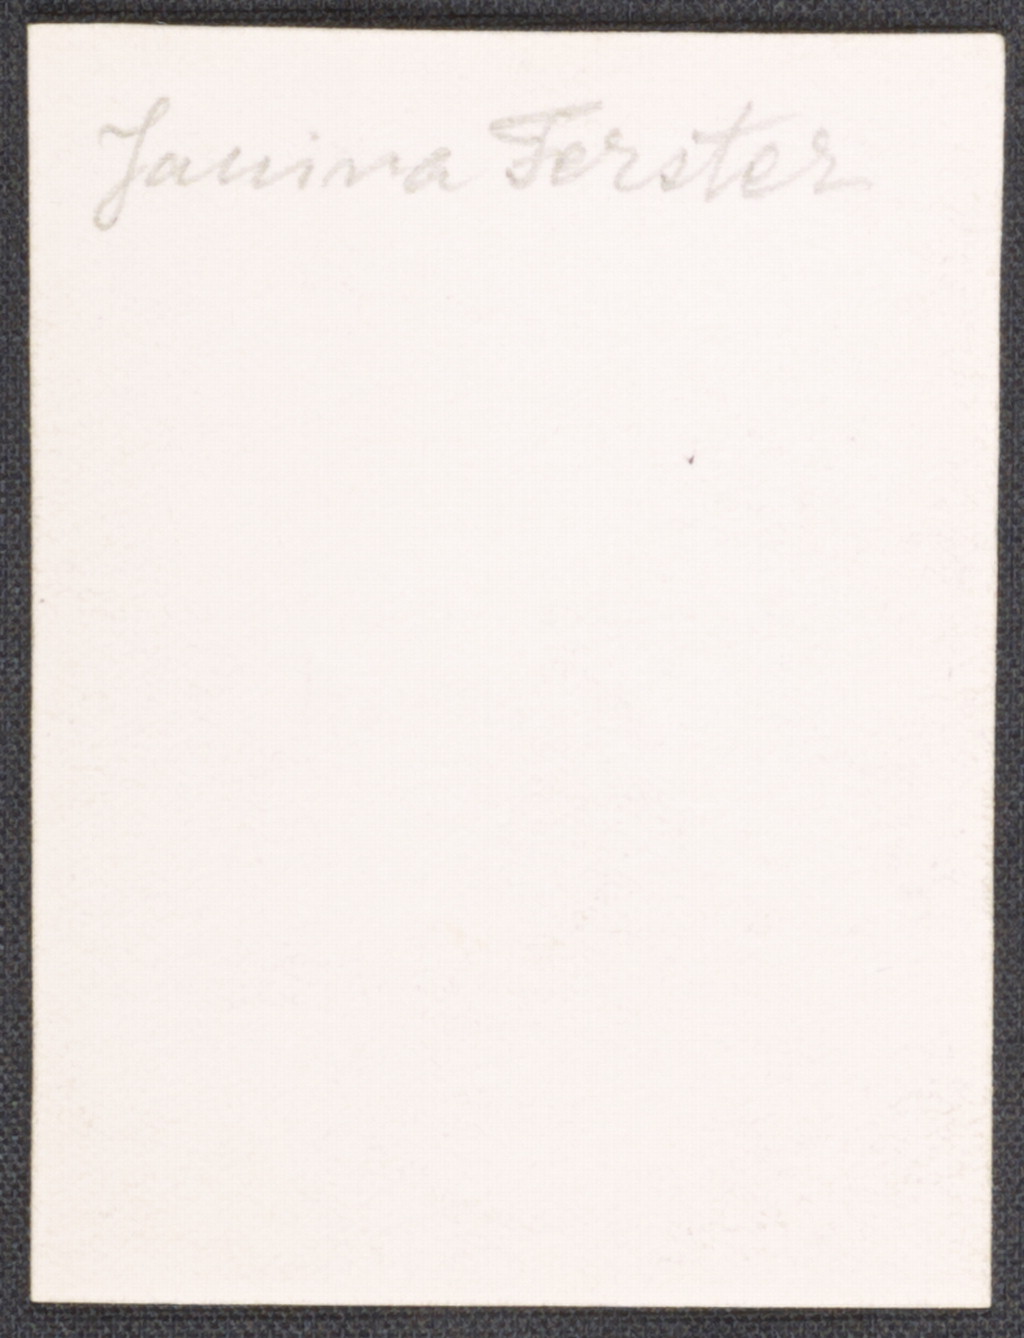 Janina Ferster